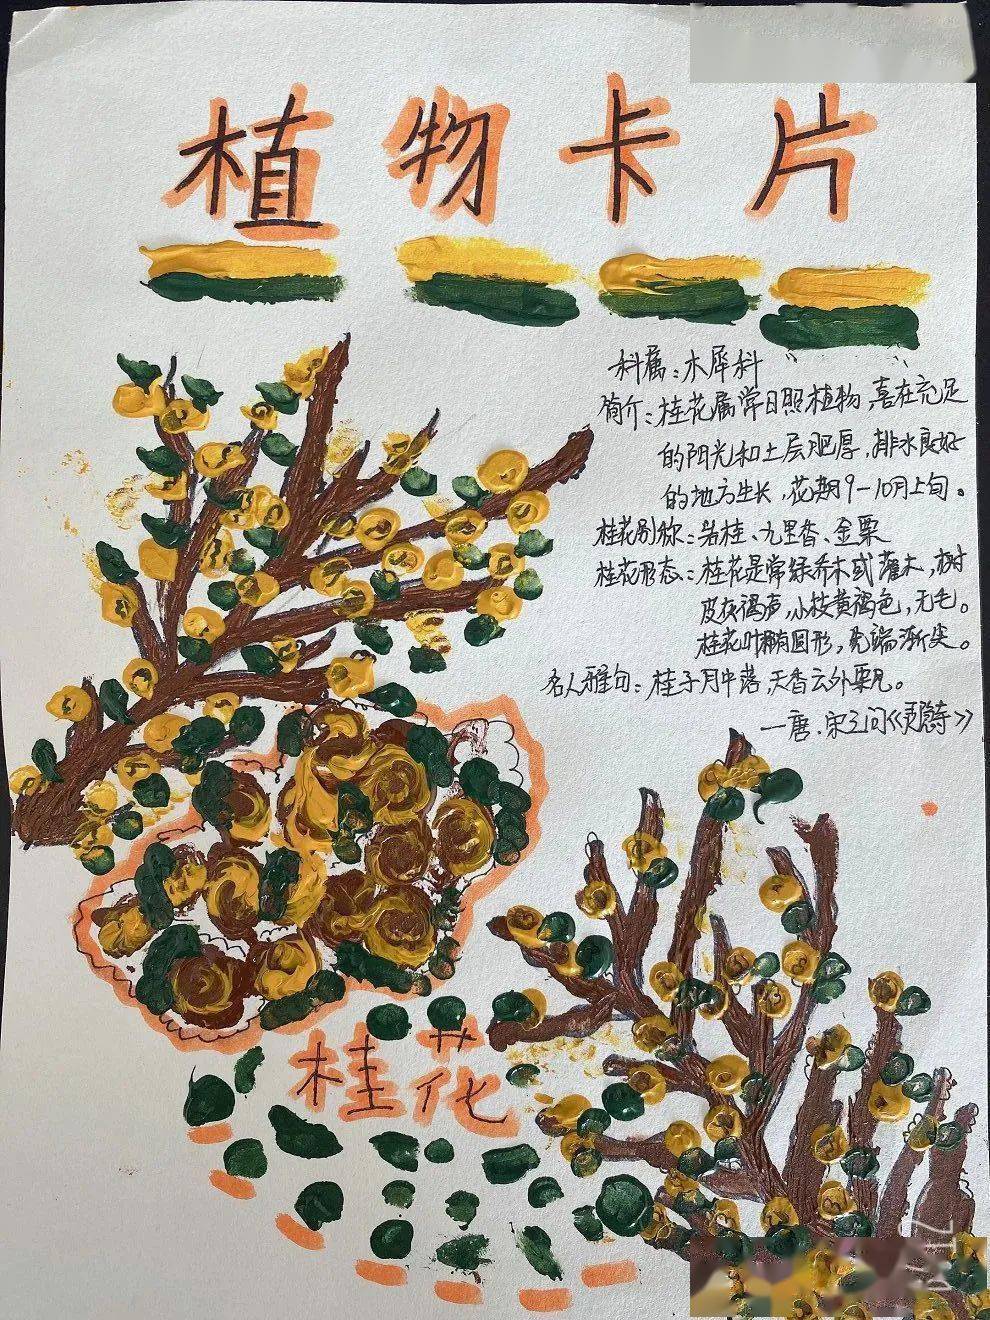 植物卡片
科属：木犀科
简介：桂花属常日照植物，喜在充足
的阳光和土层肥厚，排水良好
的地方生长，花期9-10月上旬。
桂花别称：岩桂、九里香、金粟
桂花形态：桂花是常绿乔木或灌木，树
皮灰褐声，小枝黄褐色，无毛。
桂花叶椭圆形，先端渐尖。
名人雅句：桂子月中落，天香云外飘。
—唐·宋之问《灵隐寺》
桂花